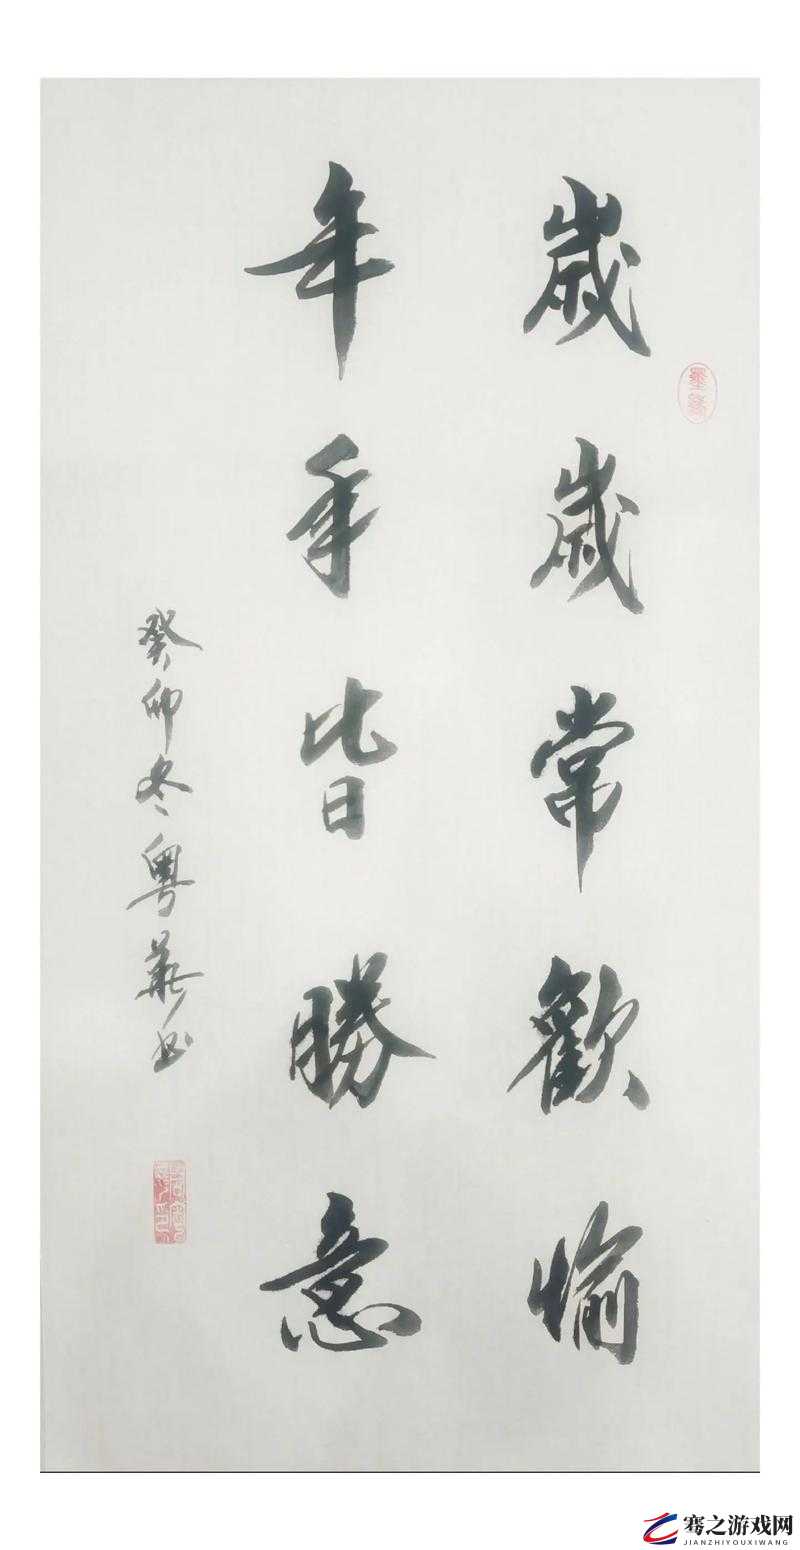 歲歲常歡愉
年年皆勝意
癸卯冬粤華书
骞之游戏网
JIANZHIYOUXIWANG